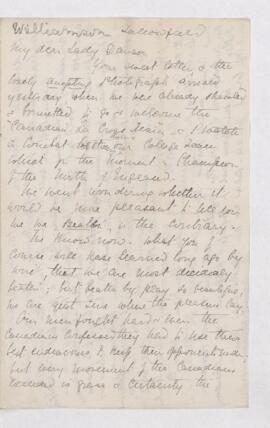 Williamson Sallowfield
My dear Lady Dawson
Your sweet letter & the
lovely Photograph arrived
yesterday when we were already shawled
& bonnetted to go & welcome the
Canadian La Crosse Team &
a Combat our College Team
for the moment - Champion
of the North of England.
We went wondering whether it
would be more pleasant to tell you
we we beaten, or the contrary.
We know now what you of
course will have learned long ago by
wire, that we are most decidedly
beaten; but beaten by play so beautiful,
we are quit sure when the pleasure
Our men fought hard & even the
Canadians confessed they had to use their
best endeavours to keep their opponents under,
but every movement of the Canadians
in grace & certainty the